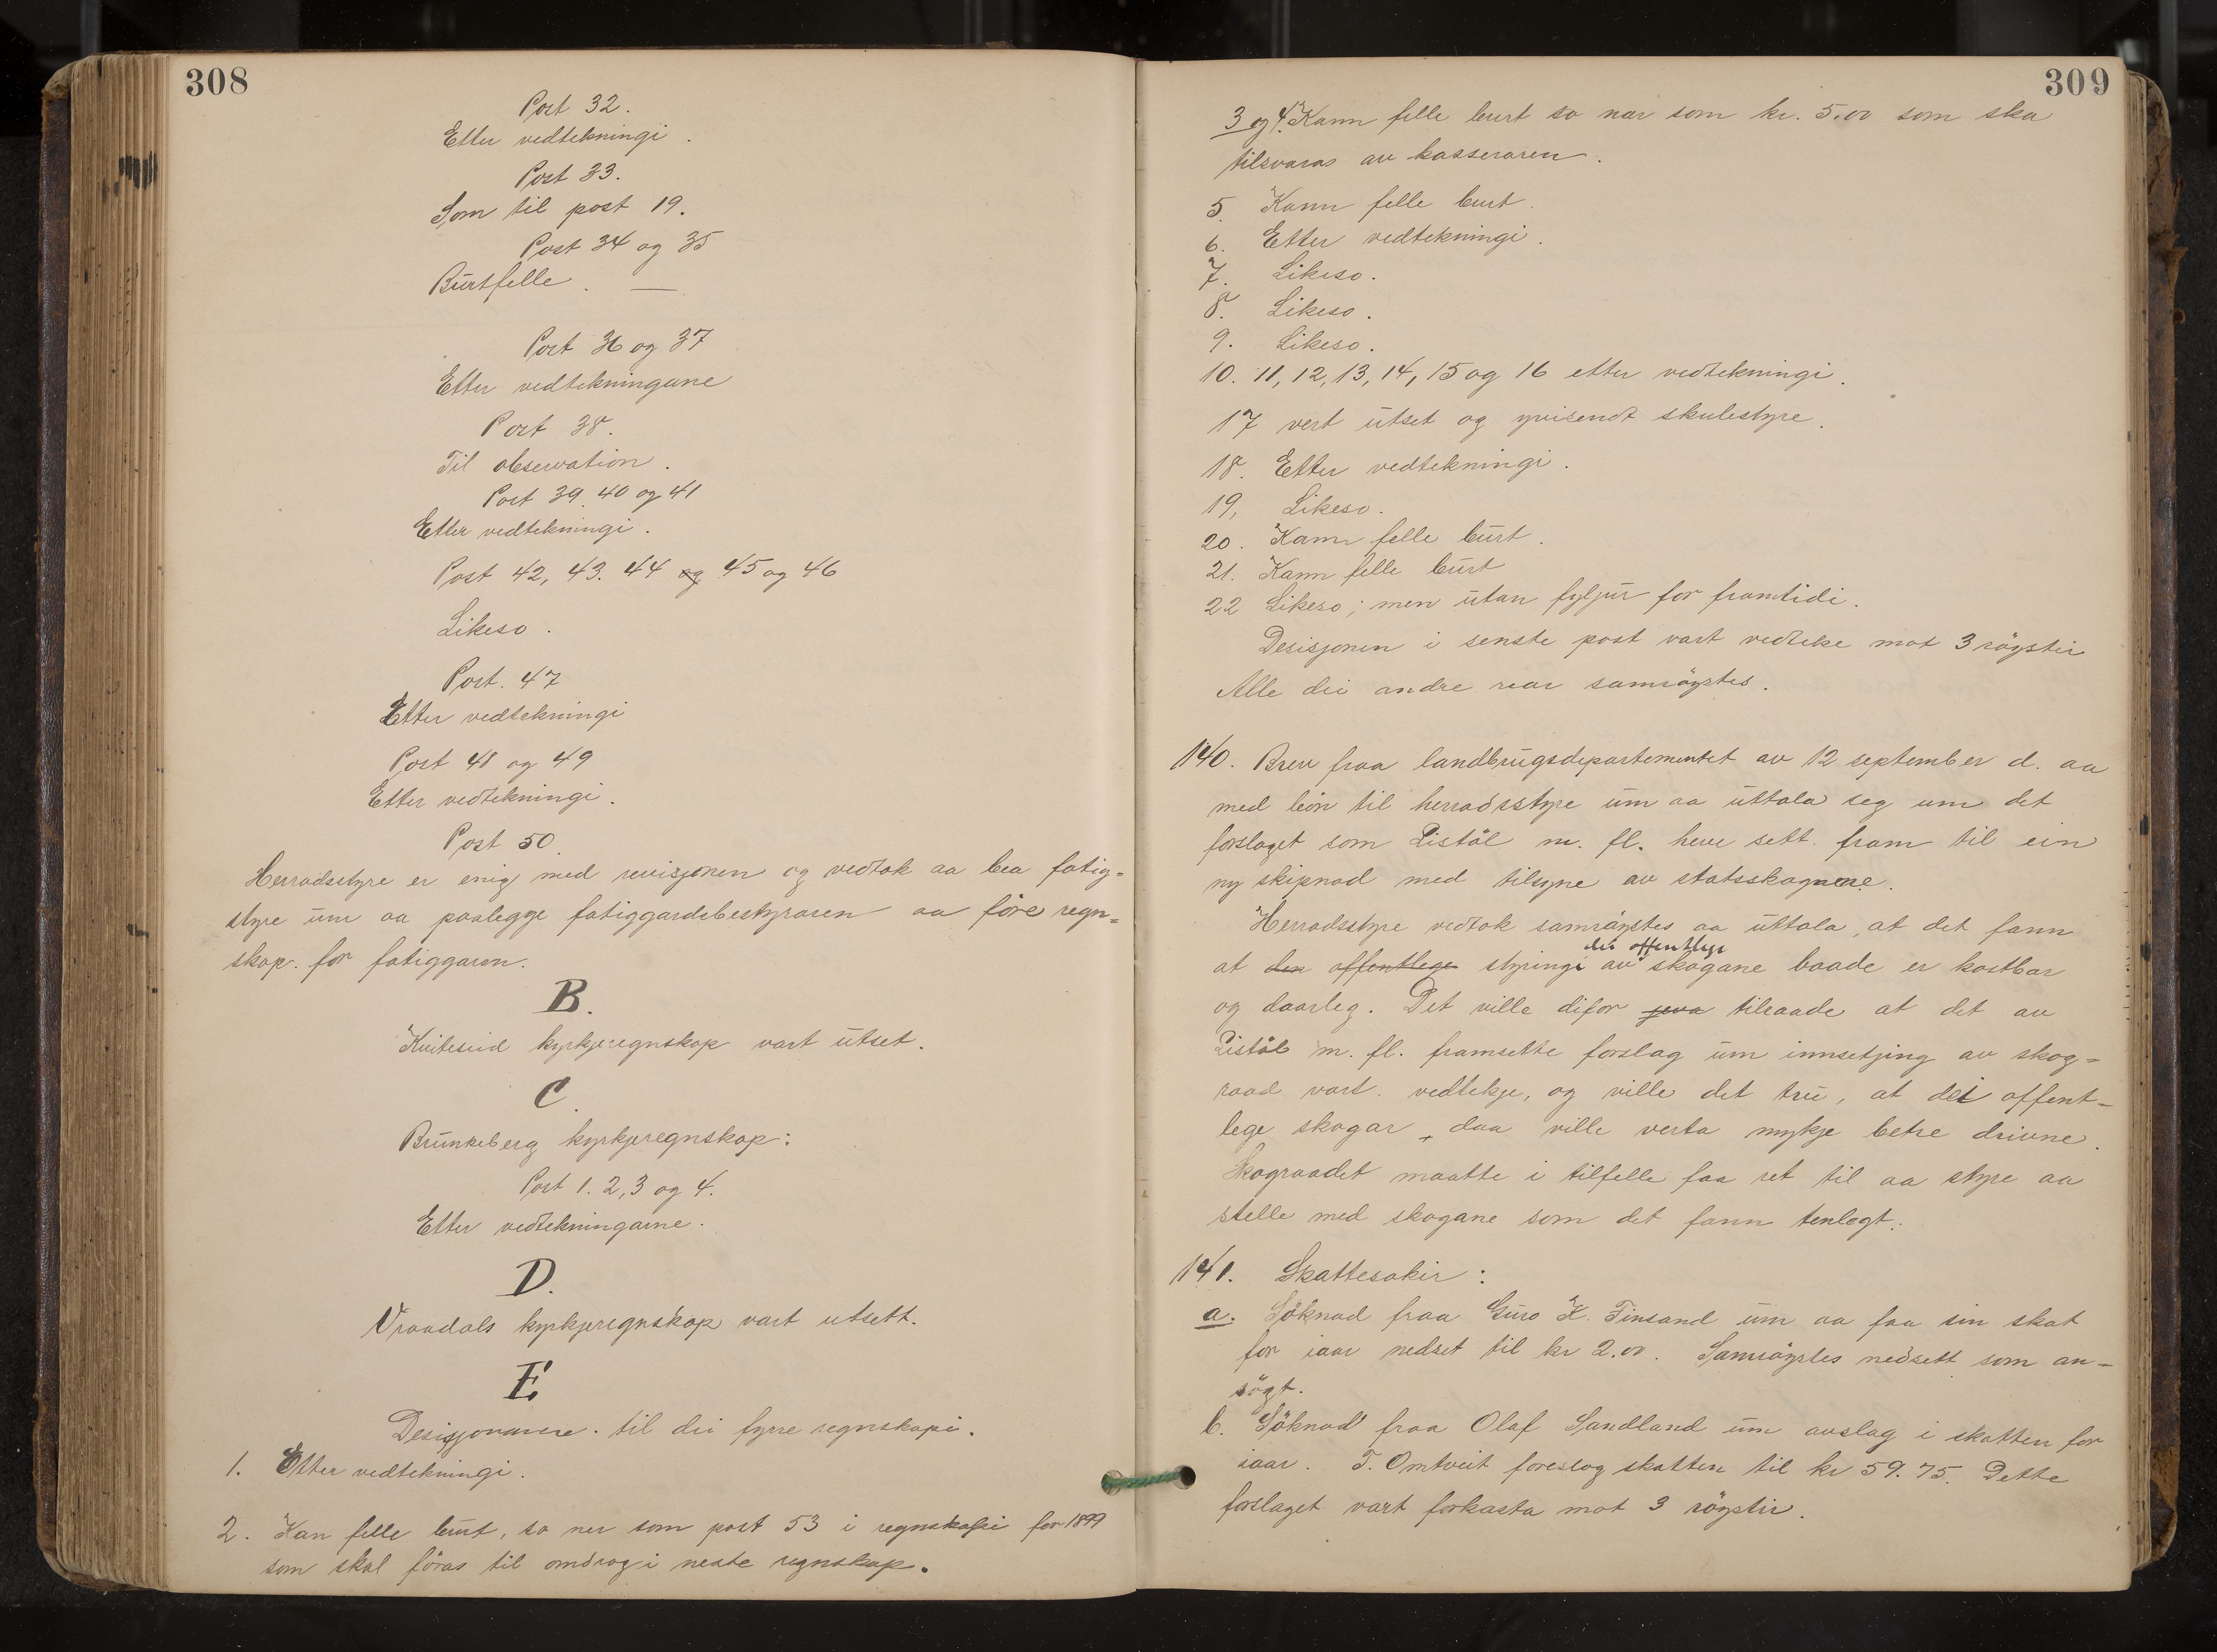 308
Post 32.
Etter vedtekningi.
Post 33.
Som til post 19.
Post 34 og 35
Burtfelle. —
Post 36 og 37
Etter vedtekningane
Post 38.
Til observation.
Post 39. 40 og 41
Etter vedtekningi.
Post 42, 43. 44 og 45 og 46
Likeso.
Post. 47
Etter vedtekningi
Post 48 og 49
Etter vedtekningi.
Post 50.
Herradsstyre er enig med revisjonen og vedtok aa bea fatig=
styre um aa paalegge fatiggardsbestyraren aa före regn=
skap. for fatiggaren.
B.
Kviteseid kyrkjeregnskap vart utset.
C.
Brunkeberg kyrkjeregnskap:
Post 1. 2, 3 og 4.
Etter vedtekningarne.
D.
Vraadals kyrkjeregnskap vart utsett.
E
Desisjonarne. til dei fyrre regnskapi.
1. Etter vedtekningi.
2. Kan felle burt, so ner som post 53 i regnskapi for 1899
som skal föras til omdrag i neste regnskap.
309
3 og 4. Kann felle burt so nær som kr. 5.00 som ska
tilsvaras av kasseraren.
5. Kann felle burt.
6. Etter vedtekningi.
7. Likeso.
8. Likeso.
9. Likeso.
10. 11, 12, 13, 14, 15 og 16 etter vedtekningi.
17 vert utset og yvisendt skulestyre.
18. Etter vedtekningi.
19, Likeso.
20. Kann felle burt.
21. Kann felle burt
22 Likeso; men utan fyljur for framtidi.
Desisjonen i senste post vart vedteke mot 3 röystir
Alle dei andre var samröystes.
140. Brev fraa landbrugsdepartementet av 12 september d. aa
med bön til herradsstyre um aa uttala seg um det
forslaget som Listöl m. fl. heve sett. fram til ein
ny skipnad med tilsyne av statsskogarne.
Herradsstyre vedtok samröystes aa uttala, at det fann
dei offentlege
at den offentlege styringi av skogane baade er kostbar
og daarleg. Det ville difor jeva tilraade at det av
Listöl m. fl. framsette forslag um innsetjing av skog=
raad vart. vedtekje, og ville det tru, at dei offent=
lege skogar daa ville verta mykje betre drivne.
Skograadet maatte i tilfelle faa ret til aa styre aa
stelle med skogane som det fann tenlegt.
141. Skattesakir:
a. Söknad fraa Guro K. Finsand um aa faa sin skat
for iaar nedset til kr 2.00. Samröystes nedsett som an=
sögt.
b. Söknad fraa Olaf Sandland um avslag i skatten for
iaar. T. Omtveit foreslog skatten til kr 59.75. Dette
forslaget vart forkasta mot 3 röystir.